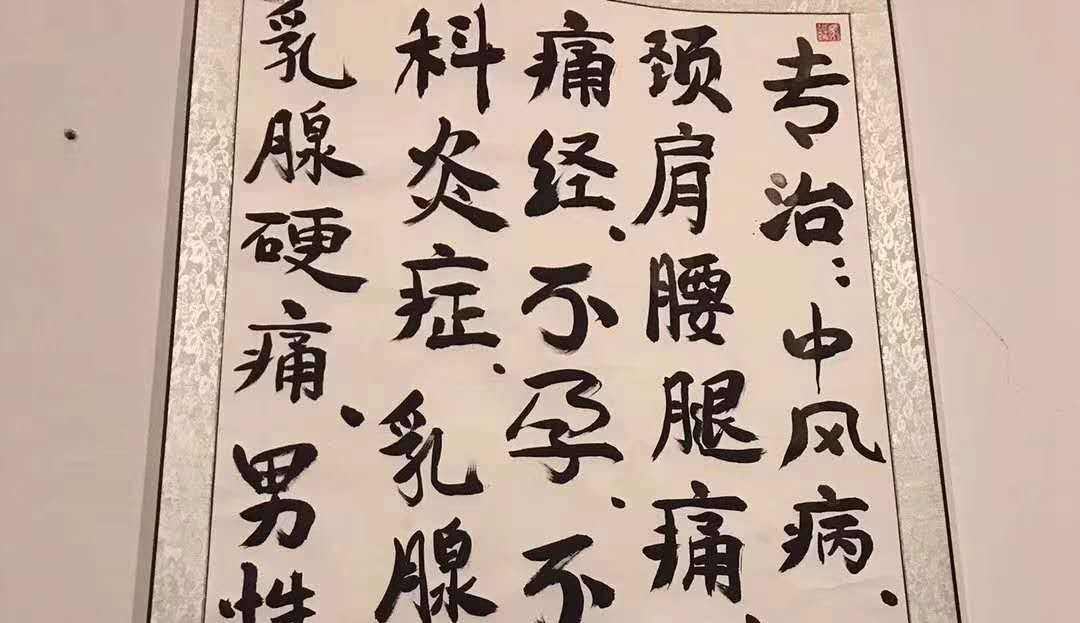 专治:中风病、
颈肩腰腿痛、
痛经、不孕、不
科炎症、乳腺
乳腺硬痛、男性